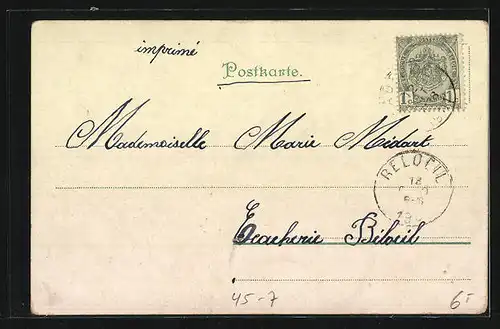 imprimé
Postkarte.
1 1
Mademoiselle Marie Midart
BELOEIL
13
Écacherie Béloeil
45-7
6.-